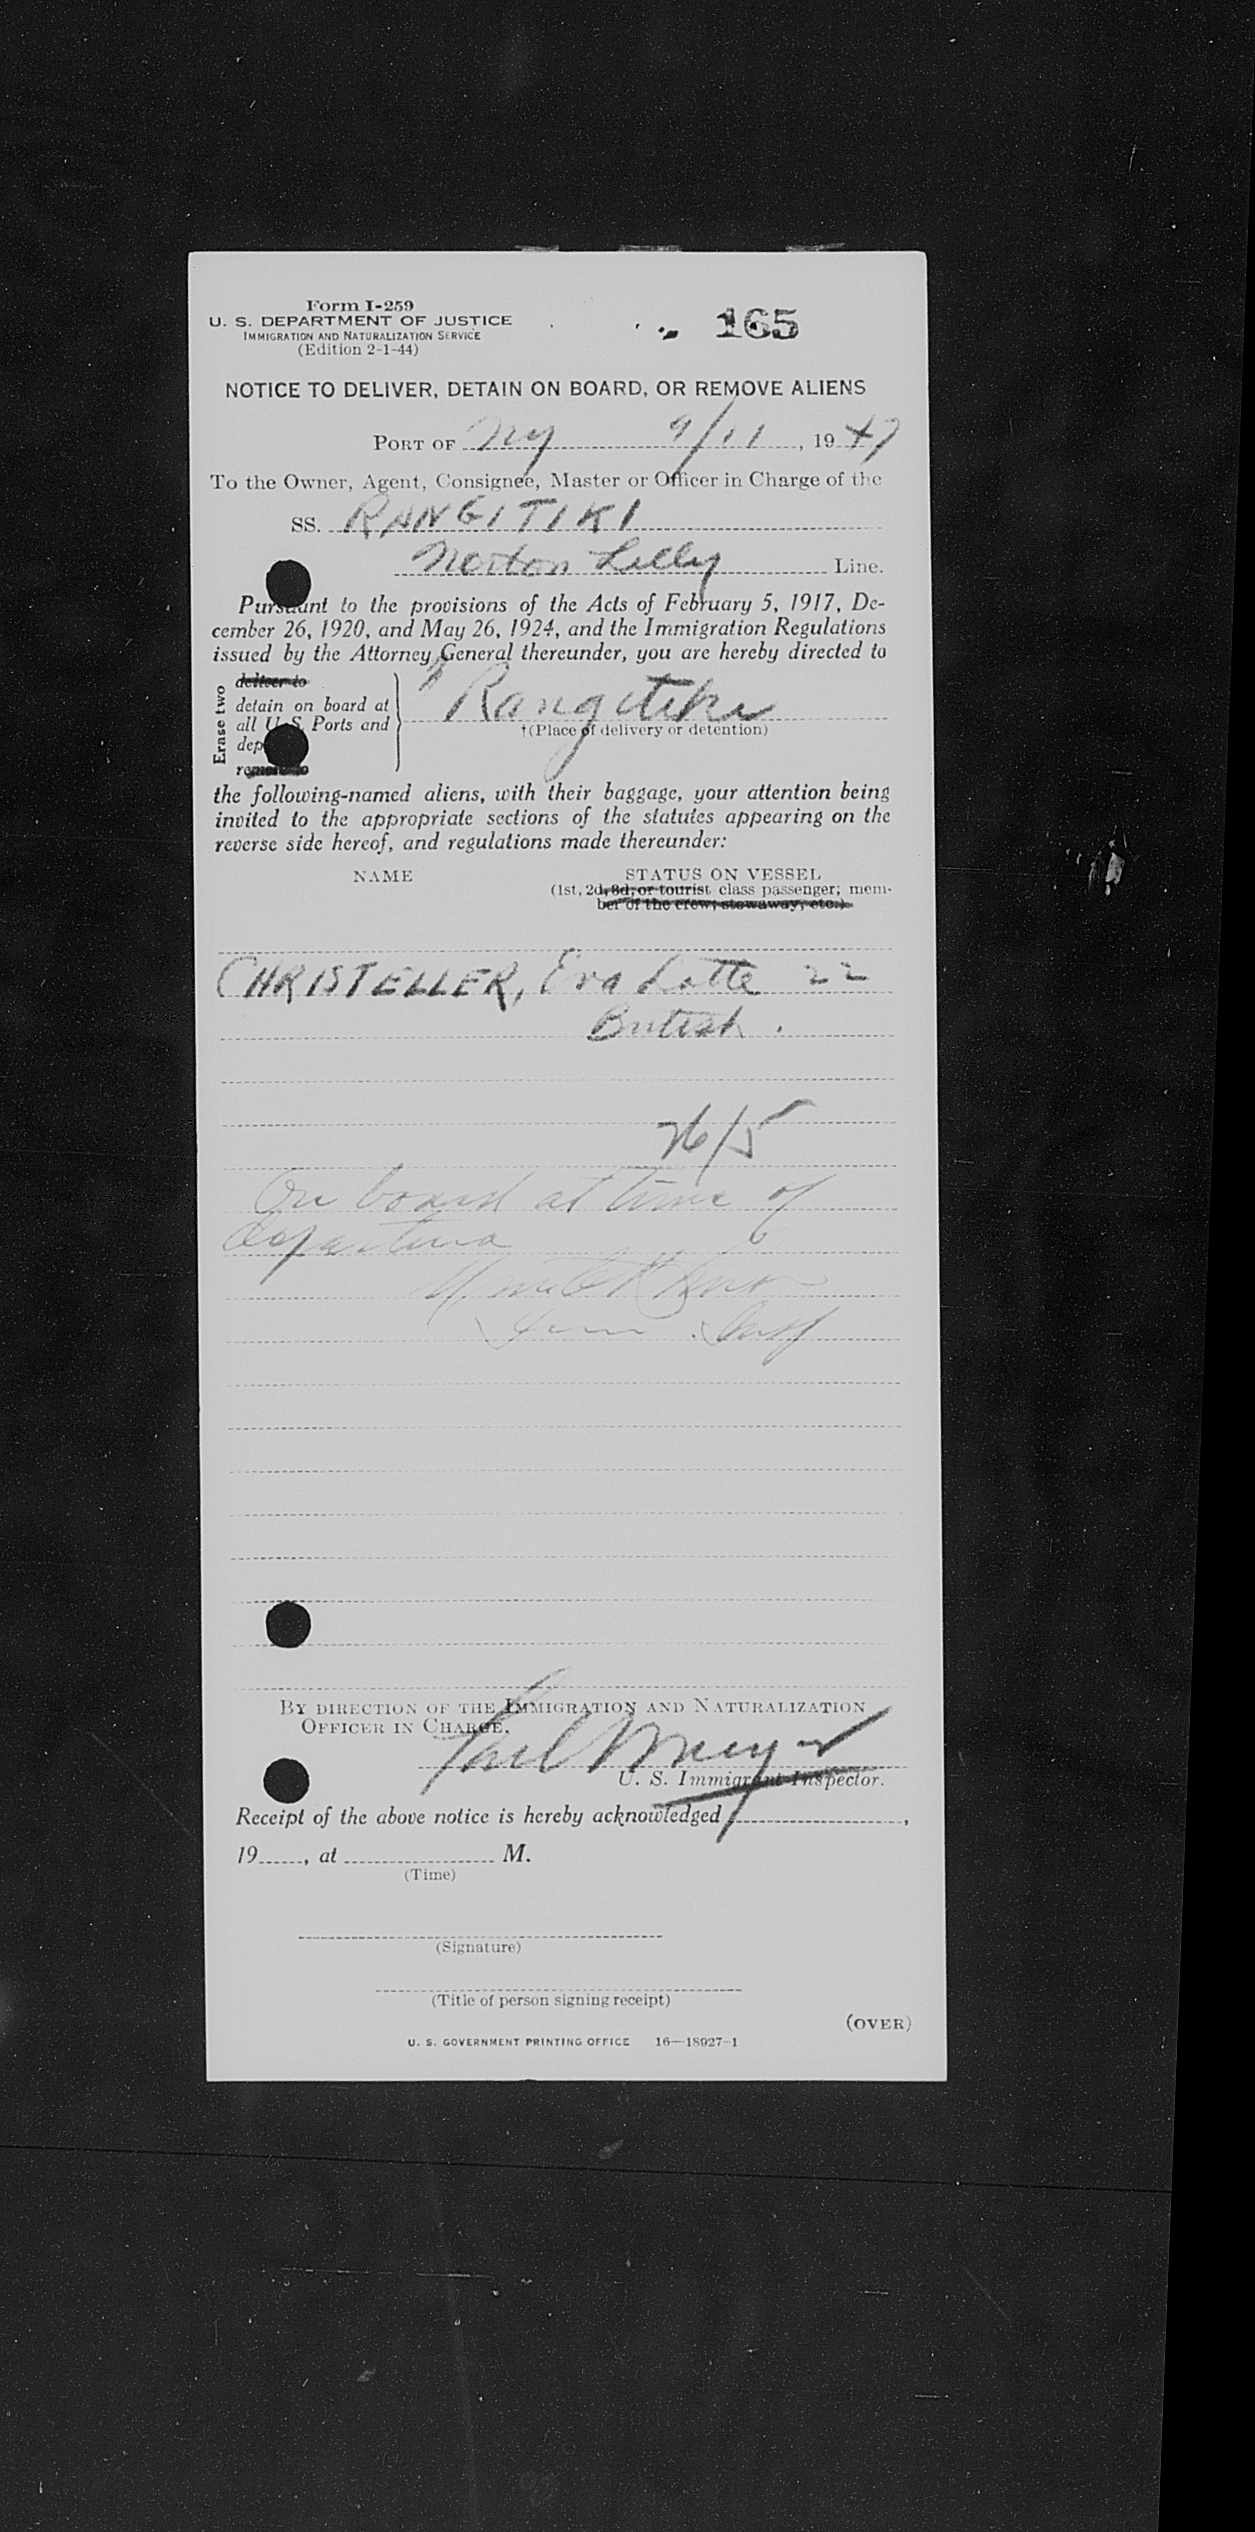 Form I-259
U. S. DEPARTMENT OF JUSTICE
IMMIGRATION AND NATURALIZATION SERVICE
(Edition 2-1-44)
165
NOTICE TO DELIVER, DETAIN ON BOARD, OR REMOVE ALIENS
PORT OF NY 9/11, 1947
To the Owner, Agent, Consignee, Master or Officer in Charge of the
SS. RANGITIKI
Norton Lilly Line.
Pursuant to the provisions of the Acts of February 5, 1917, De-
cember 26, 1920, and May 26, 1924, and the Immigration Regulations
issued by the Attorney General thereunder, you are hereby directed to
Erase two
deliver to
detain on board at
all U. S. Ports and
dep
remove to
Rangitiki
†(Place of delivery or detention)
the following-named aliens, with their baggage, your attention being
invited to the appropriate sections of the statutes appearing on the
reverse side hereof, and regulations made thereunder:
NAME STATUS ON VESSEL
(1st, 2d, 3d, or tourist class passenger; mem-
ber of the crew; stowaway, etc.)
CHRISTELLER, Eva Lotte 22
British.
26/5
On board at time of
departure
BY DIRECTION OF THE IMMIGRATION AND NATURALIZATION
OFFICER IN CHARGE.
U. S. Immigrant Inspector.
Receipt of the above notice is hereby acknowledged ,
19 , at M.
(Time)
(Signature)
(Title of person signing receipt)
(OVER)
U. S. GOVERNMENT PRINTING OFFICE 16—18927-1